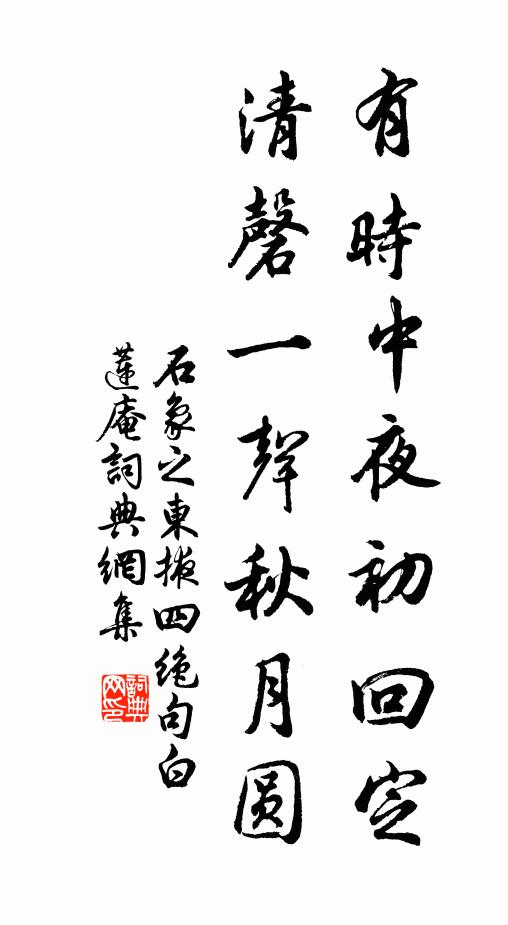 有時中夜初回定
清磬一聲秋月圓
石象之東掖四絶句白
蓮庵詞典網集
詞典
网印